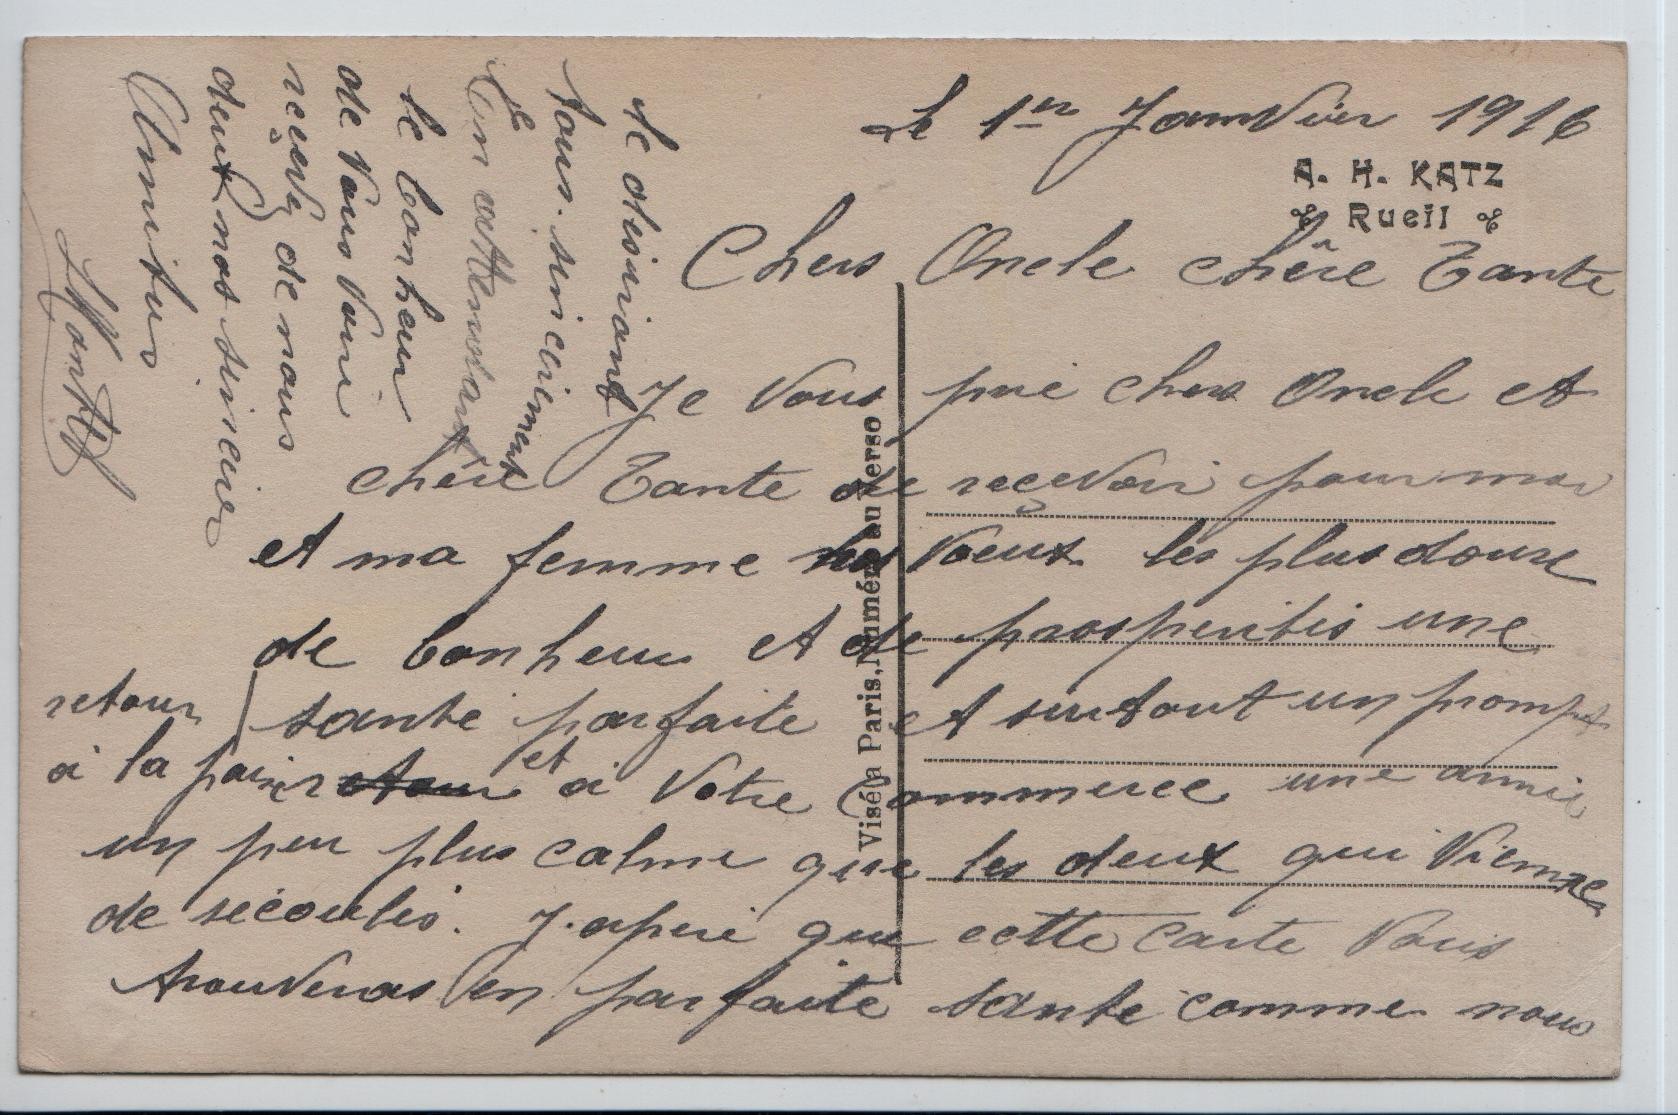 Le 1er Janvier 1916
A. H. KATZ
Rueil
Chers Oncle chère Tante
Je Vous prie chers Oncle et
chère Tante de reçevoir pour moi
et ma femme nos Voeux les plus doux
de bonheur et de prosperités une
santé parfaite et surtout un prompt
retour
à la paix et à Votre Commerce une année
un peu plus calme que les deux qui Viennes
de sécoulés. J. éspère que cette carte Vous
trouveras en parfaite santé comme nous
le désirions
tous. sincèrement
En attendant
le bonheur
de Vous Voire
reçevez de nous
deux nos sincères
Amitiés
Visé à Paris, Numéro au verso